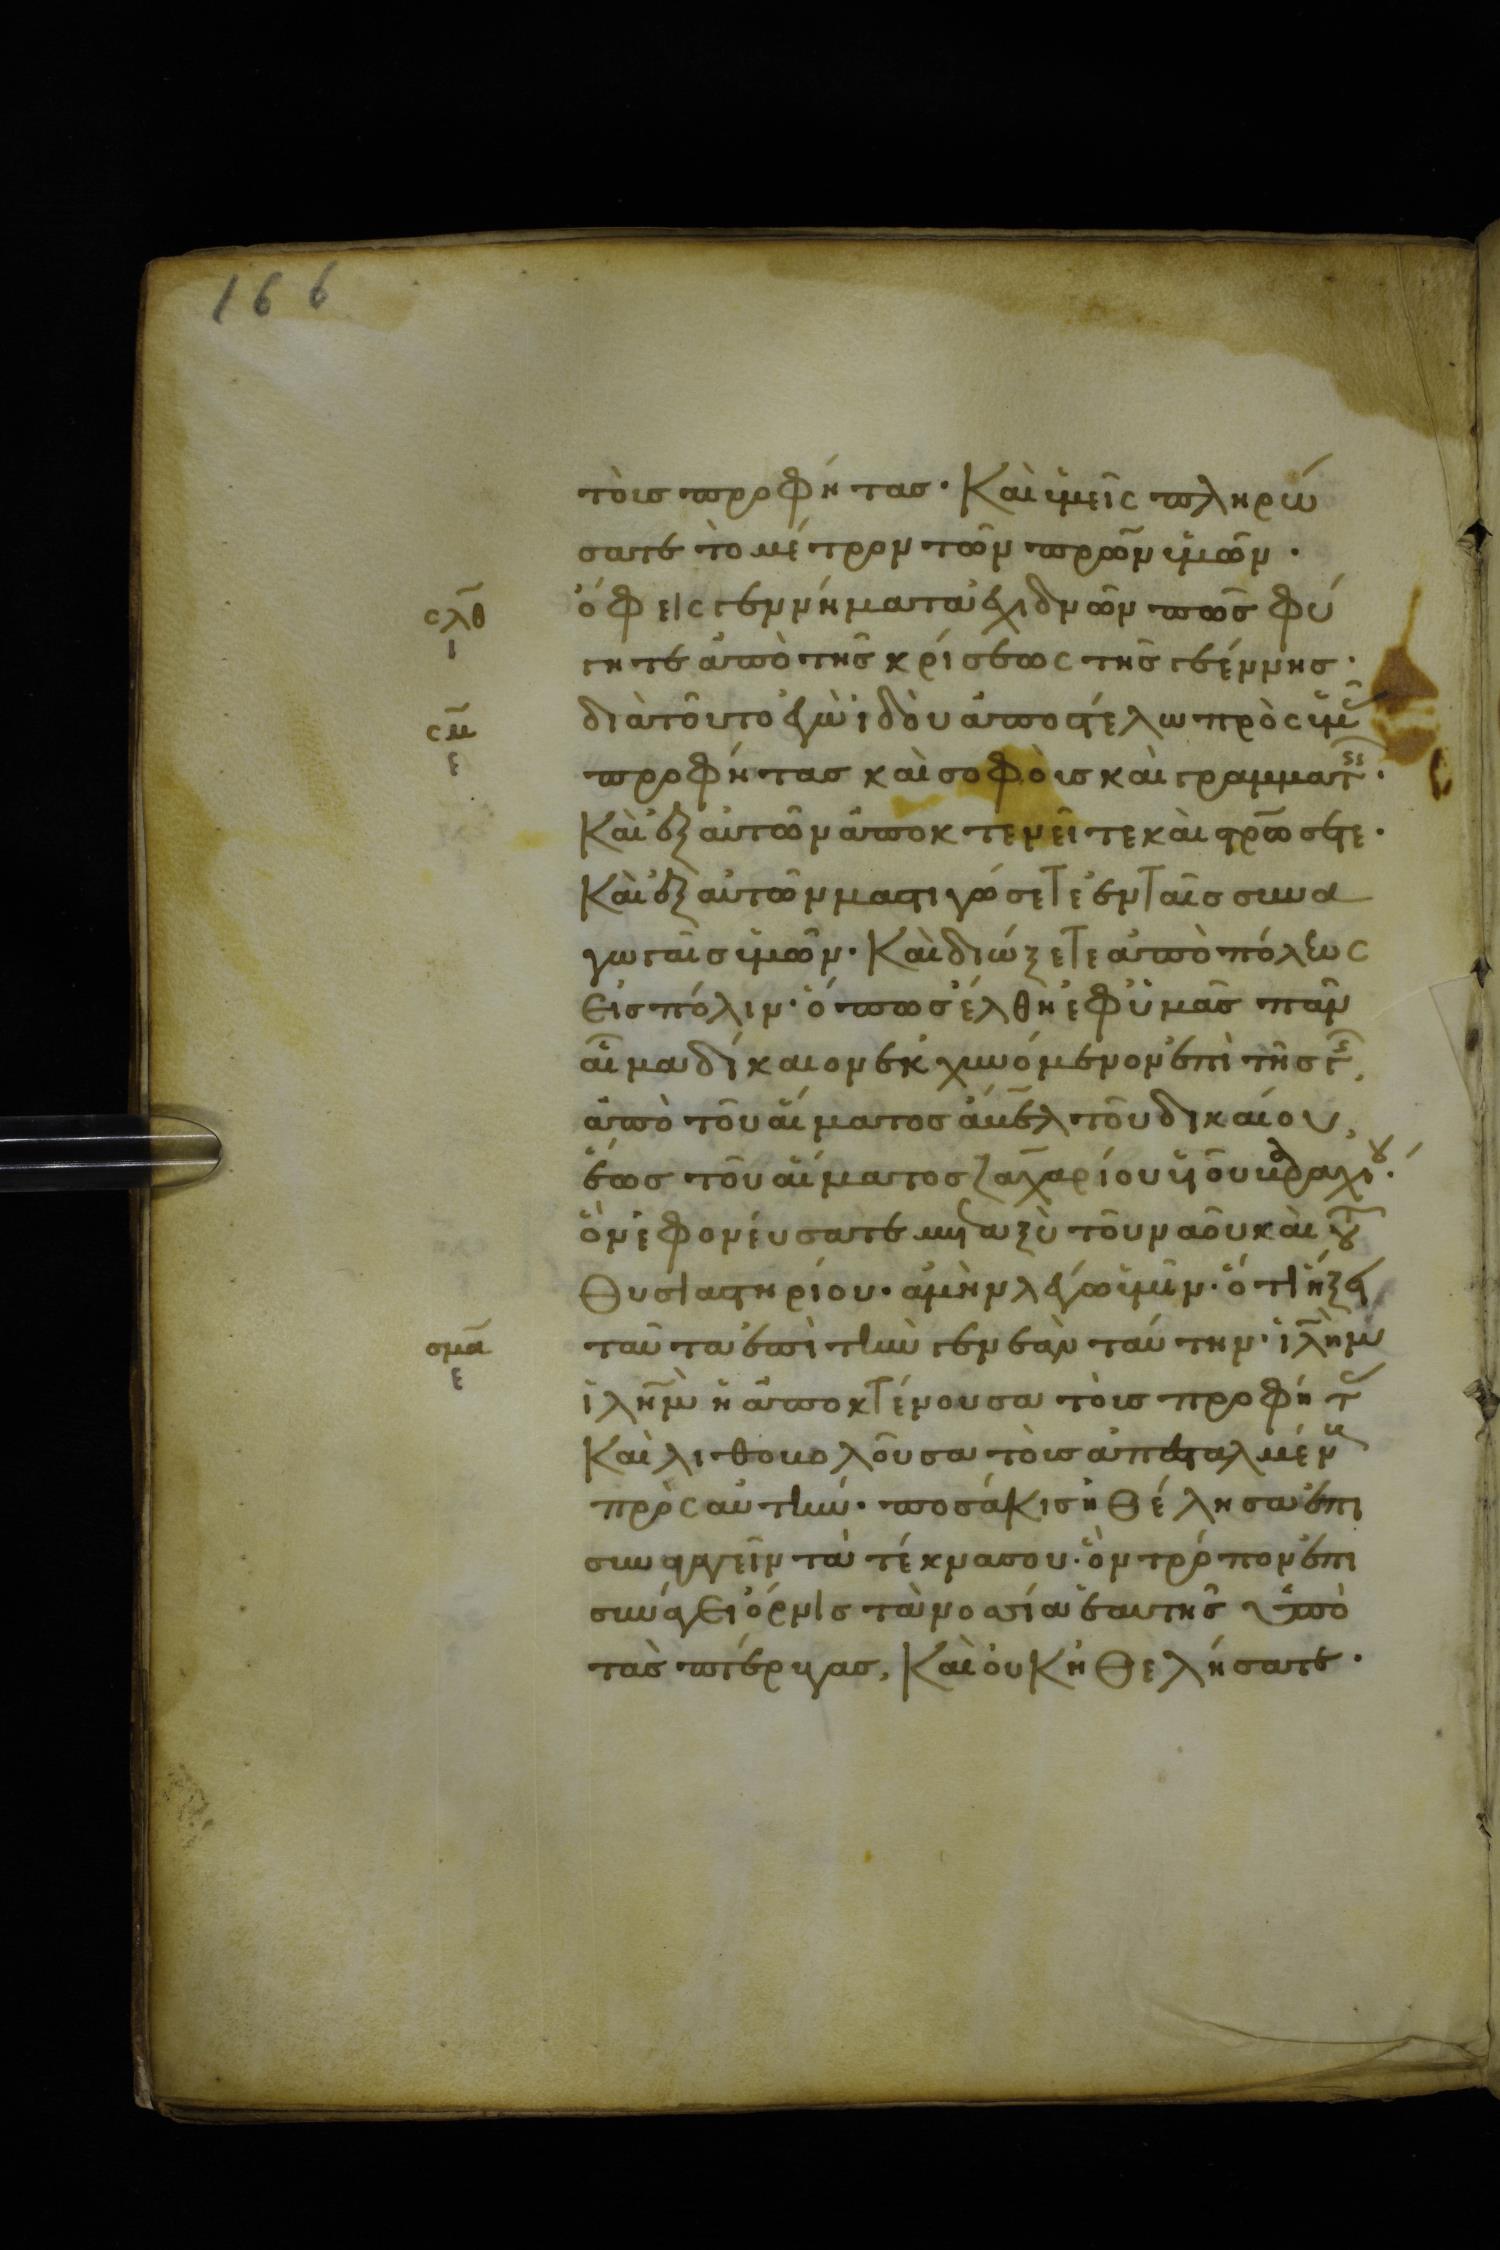 166
τοὺς προφήτας· Καὶ ὑμεῖς πληρώ
σατε τὸ μέτρον τῶν πρῶν ὑμῶν·
σλθ ὄφεις γεννήματα ἐχιδνῶν πῶς φύ
ι γητε ἀπὸ τῆς κρίσεως τῆς γεέννης·
σμ διὰ τοῦτο ἐγὼ ἰδοὺ ἀποστέλω πρὸς ὑμ
ε προφήτας καὶ σοφοὺς καὶ γραμματ·
Καὶ ἐξ αὐτῶν ἀποκτενεῖτε καὶ στρώσετε·
Καὶ ἐξ αὐτῶν μαστιγώσετε ἐν ταῖς συνα
γωγαῖς ὑμῶν· Καὶ διώξετε ἀπὸ πόλεως
εἰς πόλιν· ὅπως ἔλθη ἐφ ὑμᾶς πᾶν
αἷμα δίκαιον ἐκχυνόμενον ἐπὶ τῆς γ,
ἀπὸ τοῦ αἵματος ἄμβελ τοῦ δικαίου,
ἕως τοῦ αἵματος ζαχαρίου υἱοῦ βαραχίου·
ὃν ἐφονεύσατε μεταξὺ τοῦ ναοῦ καὶ τοῦ
θυσιαστηρίου· ἀμὴν λέγω ὑμῖν· ὅτι ἥξει
σμα ταῦτα ἐπὶ τὴν γενεὰν ταύτην· ἱλημ
ε ἱλημ ἡ ἀποκτένουσα τοὺς προφήτ
Καὶ λιθοβολοῦσα τοὺς ἀπεσταλμέν
πρὸς αὐτήν· ποσάκις ἠθέλησα ἐπι
συναγαγεῖν τὰ τέκνα σου· ὃν τρόπον ἐπι
συνάγει ὄρνις τὰ νοσία ἑαυτῆς ὑπὸ
τὰς πτέρυγας, Καὶ οὐκ ἠθελήσατε·